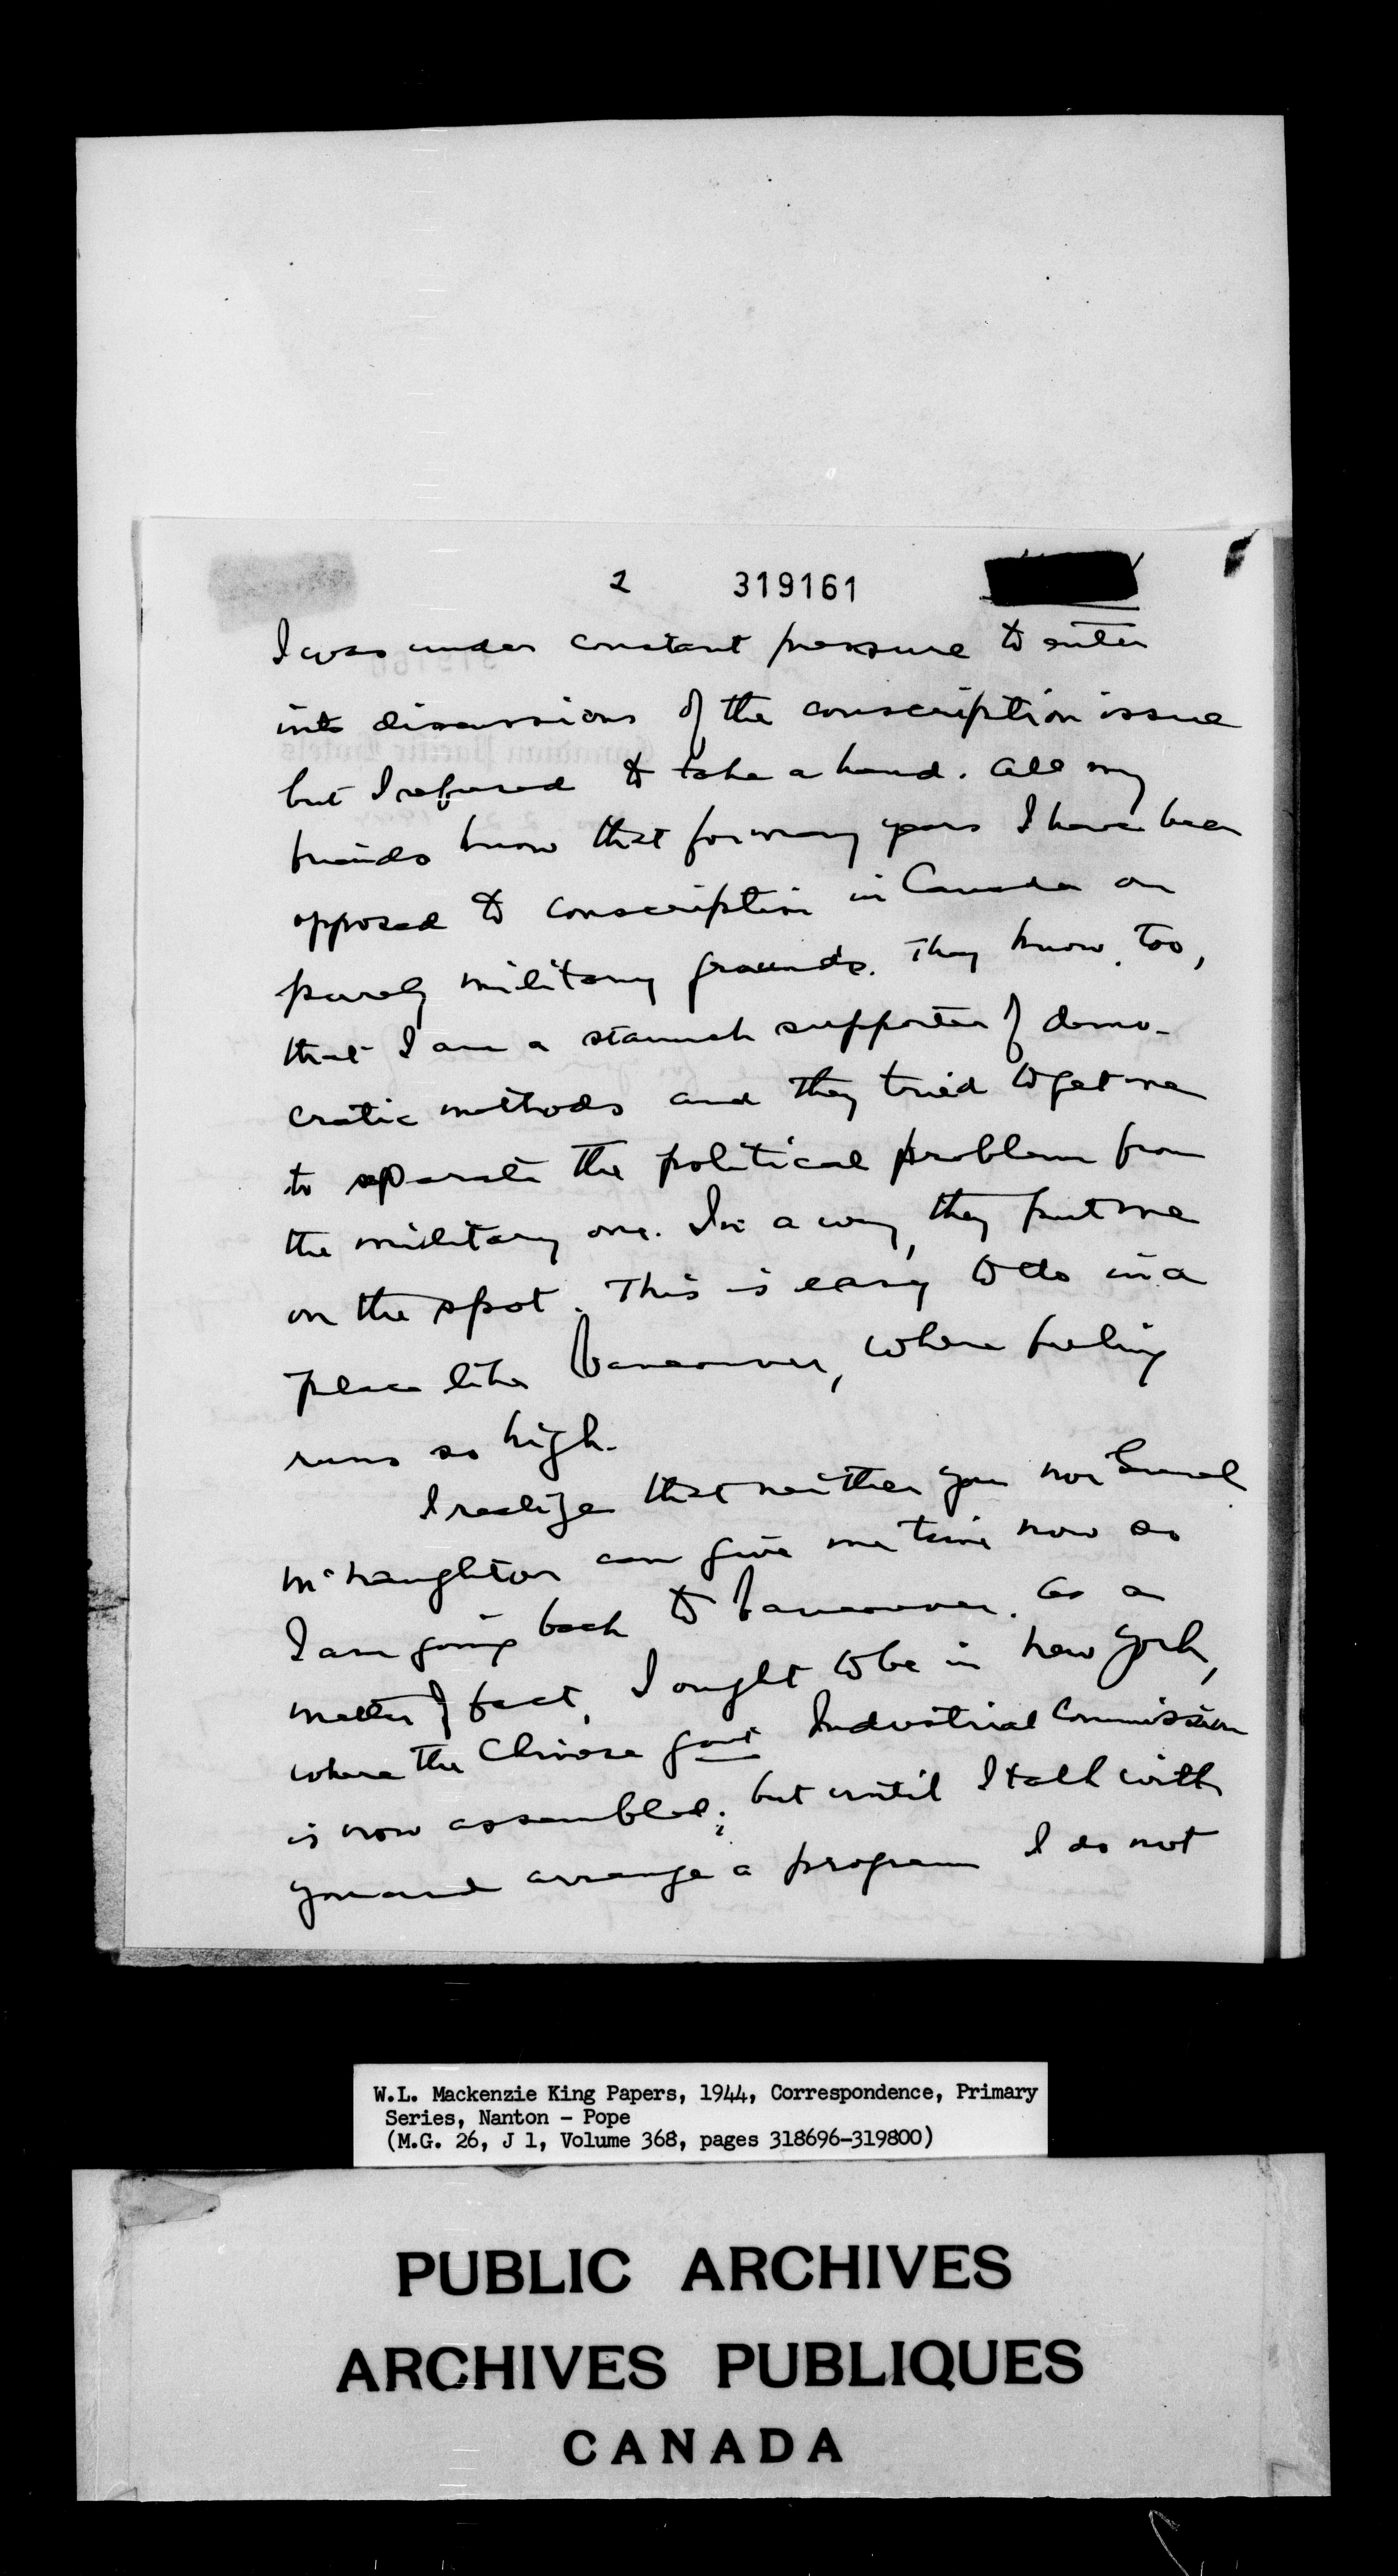 2 319161
I was under constant pressure to enter
into discussions of the conscription issue
but I refused to take a hand. All my
friends know that for many years I have been
opposed to conscription in Canada on
purely military grounds. They know, too,
that I am a staunch supporter of demo-
cratic methods and they tried to get me
to separate the political problem from
the military one. In a way, they put me
on the spot. This is easy to do in a
place like Vancouver, where feeling
runs so high.
I realize that neither you nor General
McNaughton can give me time now so
I am going back to Vancouver. As a
matter of fact, I ought to be in New York,
where the Chinese govt Industrial Commission
is now assembled; but until I talk with
you and arrange a program I do not
W.L. Mackenzie King Papers, 1944, Correspondence, Primary
Series, Nanton - Pope
(M.G. 26, J 1, Volume 368, pages 318696-319800)
PUBLIC ARCHIVES
ARCHIVES PUBLIQUES
CANADA